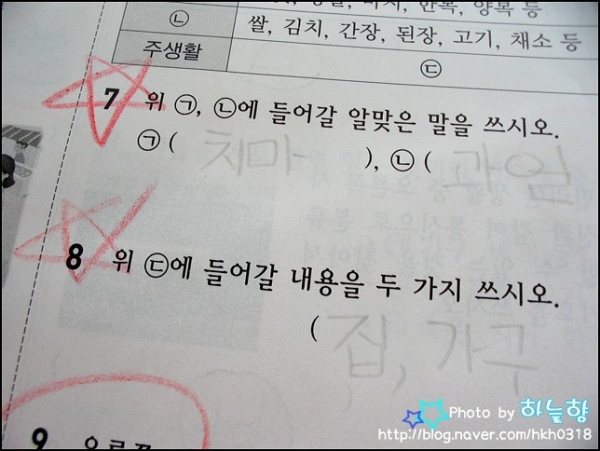 한복, 양복 등
㉡ 쌀, 김치, 간장, 된장, 고기, 채소 등
주생활 ㉢
7 위 ㉠, ㉡에 들어갈 알맞은 말을 쓰시오.
㉠ ( 치마 ), ㉡ ( 과일
8 위 ㉢에 들어갈 내용을 두 가지 쓰시오.
( 집, 가구
9
Photo by 하늘향
http://blog.naver.com/hkh0318